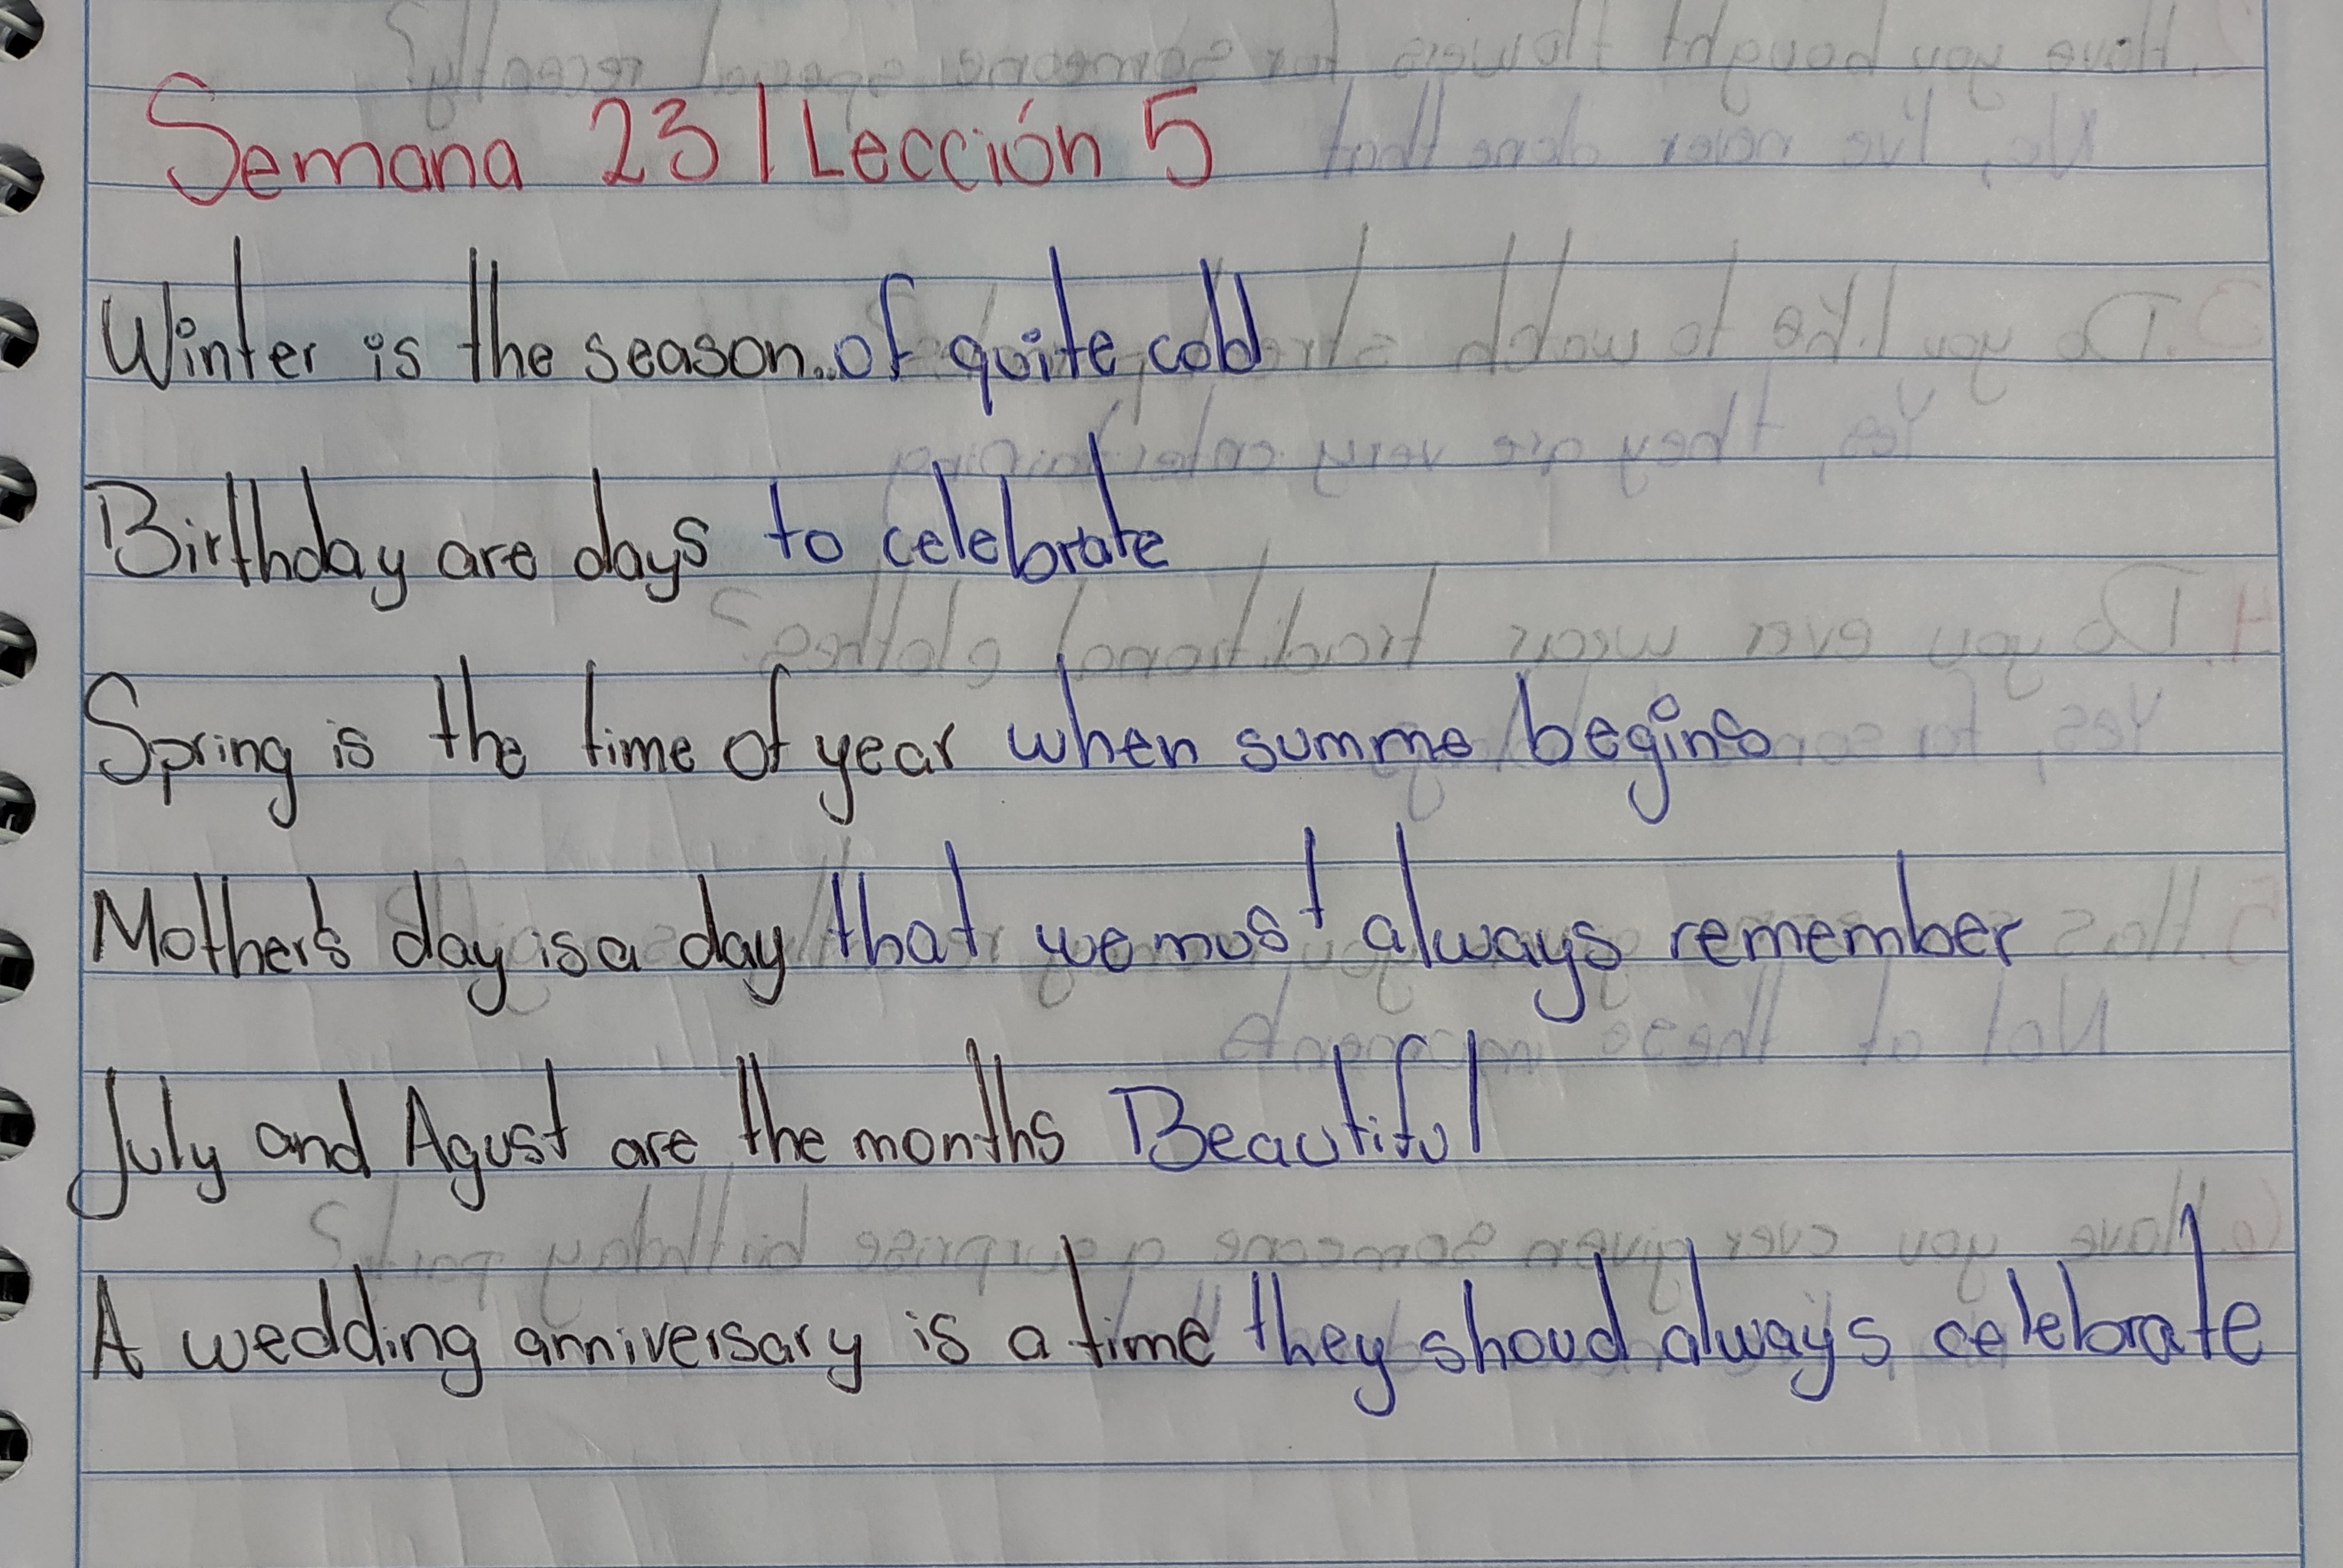 Semana 23 | Lección 5
Winter is the season...of quite cold
Birthday are days to celebrate
Spring is the time of year when summe begins
Mother's day is a day that we must always remember
July and Agust are the months Beautiful
A wedding anniversary is a time they shoud always celebrate